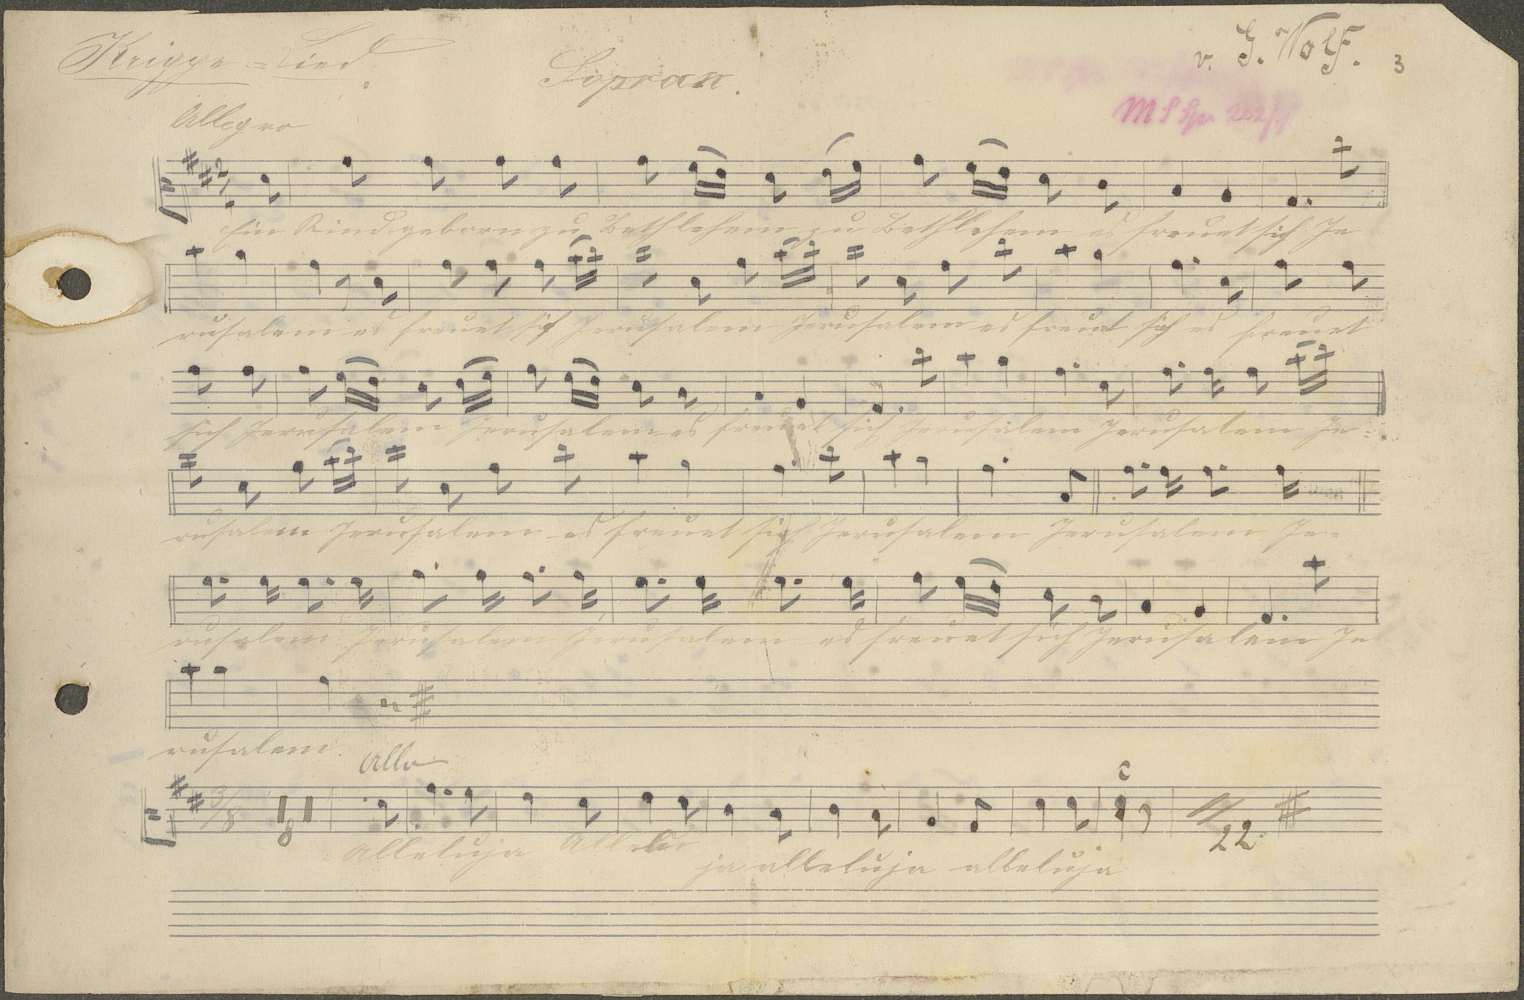 Krippe=Lied.
Sopran.
v. G. Wolf.
3
Allegro
Ein Kind geborn zu Bethlehem zu Bethlehem es freuet sich Je
rusalem es freuet sich Jerusalem Jerusalem es freut sich es freuet
sich Jerusalem Jerusalem es freuet sich Jerusalem Jerusalem Je-
rusalem Jerusalem es freuet sich Jerusalem Jerusalem Je-
rusalem Jerusalem Jerusalem es freuet sich Jerusalem Je
rusalem.
Allo
3/8
8
c
22
Alleluja Allelu
ja alleluja alleluja